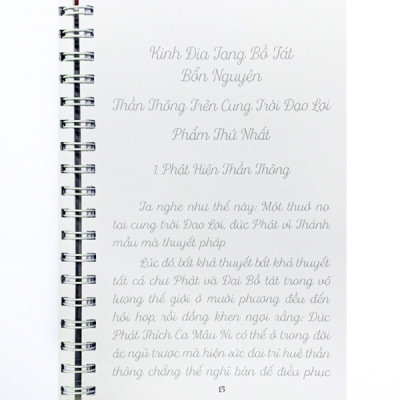 Kinh Địa Tạng Bồ Tát
Bổn Nguyện
Thần Thông Trên Cung Trời Đạo Lợi
Phẩm Thứ Nhất
1. Phật Hiện Thần Thông
Ta nghe như thế này: Một thuở nọ
tại cung trời Đao Lợi, đức Phật vì Thánh
mẫu mà thuyết pháp.
Lúc đó, bất khả thuyết bất khả thuyết
tất cả chư Phật và Đại Bồ tát trong vô
lượng thế giới ở mười phương đều đến
hội họp, rồi đồng khen ngợi rằng: Đức
Phật Thích Ca Mâu Ni, có thể ở trong đời
ác ngũ trược mà hiện sức đại trí huệ thần
thông chẳng thể nghĩ bàn để điều phục
15